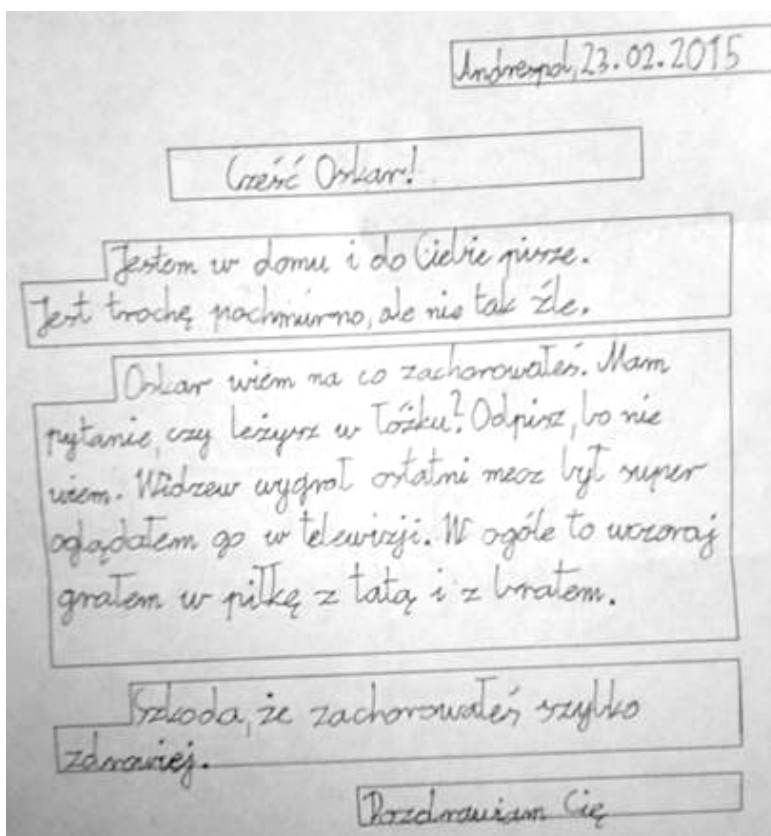 Andrespol, 23.02.2015
Cześć Oskar!
Jestem w domu i do Ciebie pisze.
Jest trochę pochmurno, ale nie tak źle.
Oskar wiem na co zachorowałeś. Mam
pytanie, czy leżysz w łóżku? Odpisz, bo nie
wiem. Widzew wygrał ostatni mecz był super
oglądałem go w telewizji. W ogóle to wczoraj
grałem w piłkę z tatą i z bratem.
Szkoda, że zachorowałeś szybko
zdrowiej.
Pozdrawiam Cię